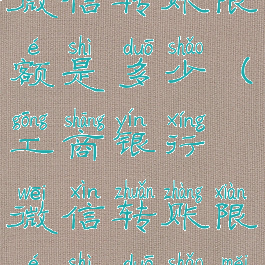 微信转账限
é shì duō shǎo
额是多少（
gōng shāng yín xíng
工商银行
wēi xìn zhuǎn zhàng xiàn
微信转账限
é shì duō shǎo měi